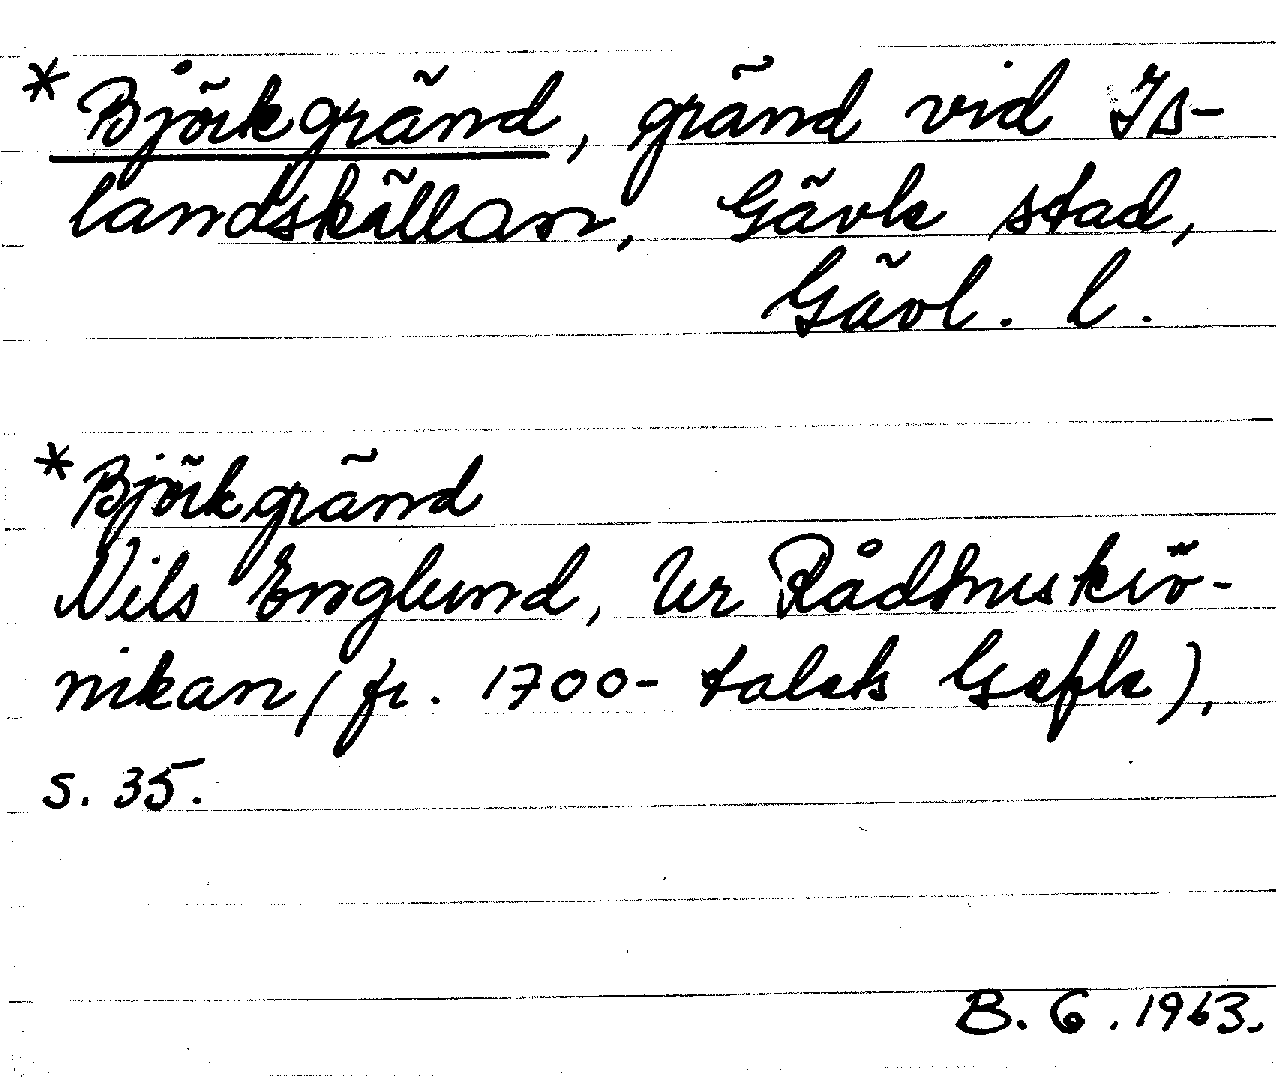 *Björkgränd, gränd vid Is-
landskällan, Gävle stad,
Gävl. l.
*Björkgränd
Nils Englund, Ur Rådhuskrö-
nikan (fr. 1700-talets Gefle),
s. 35.
B. G. 1963.